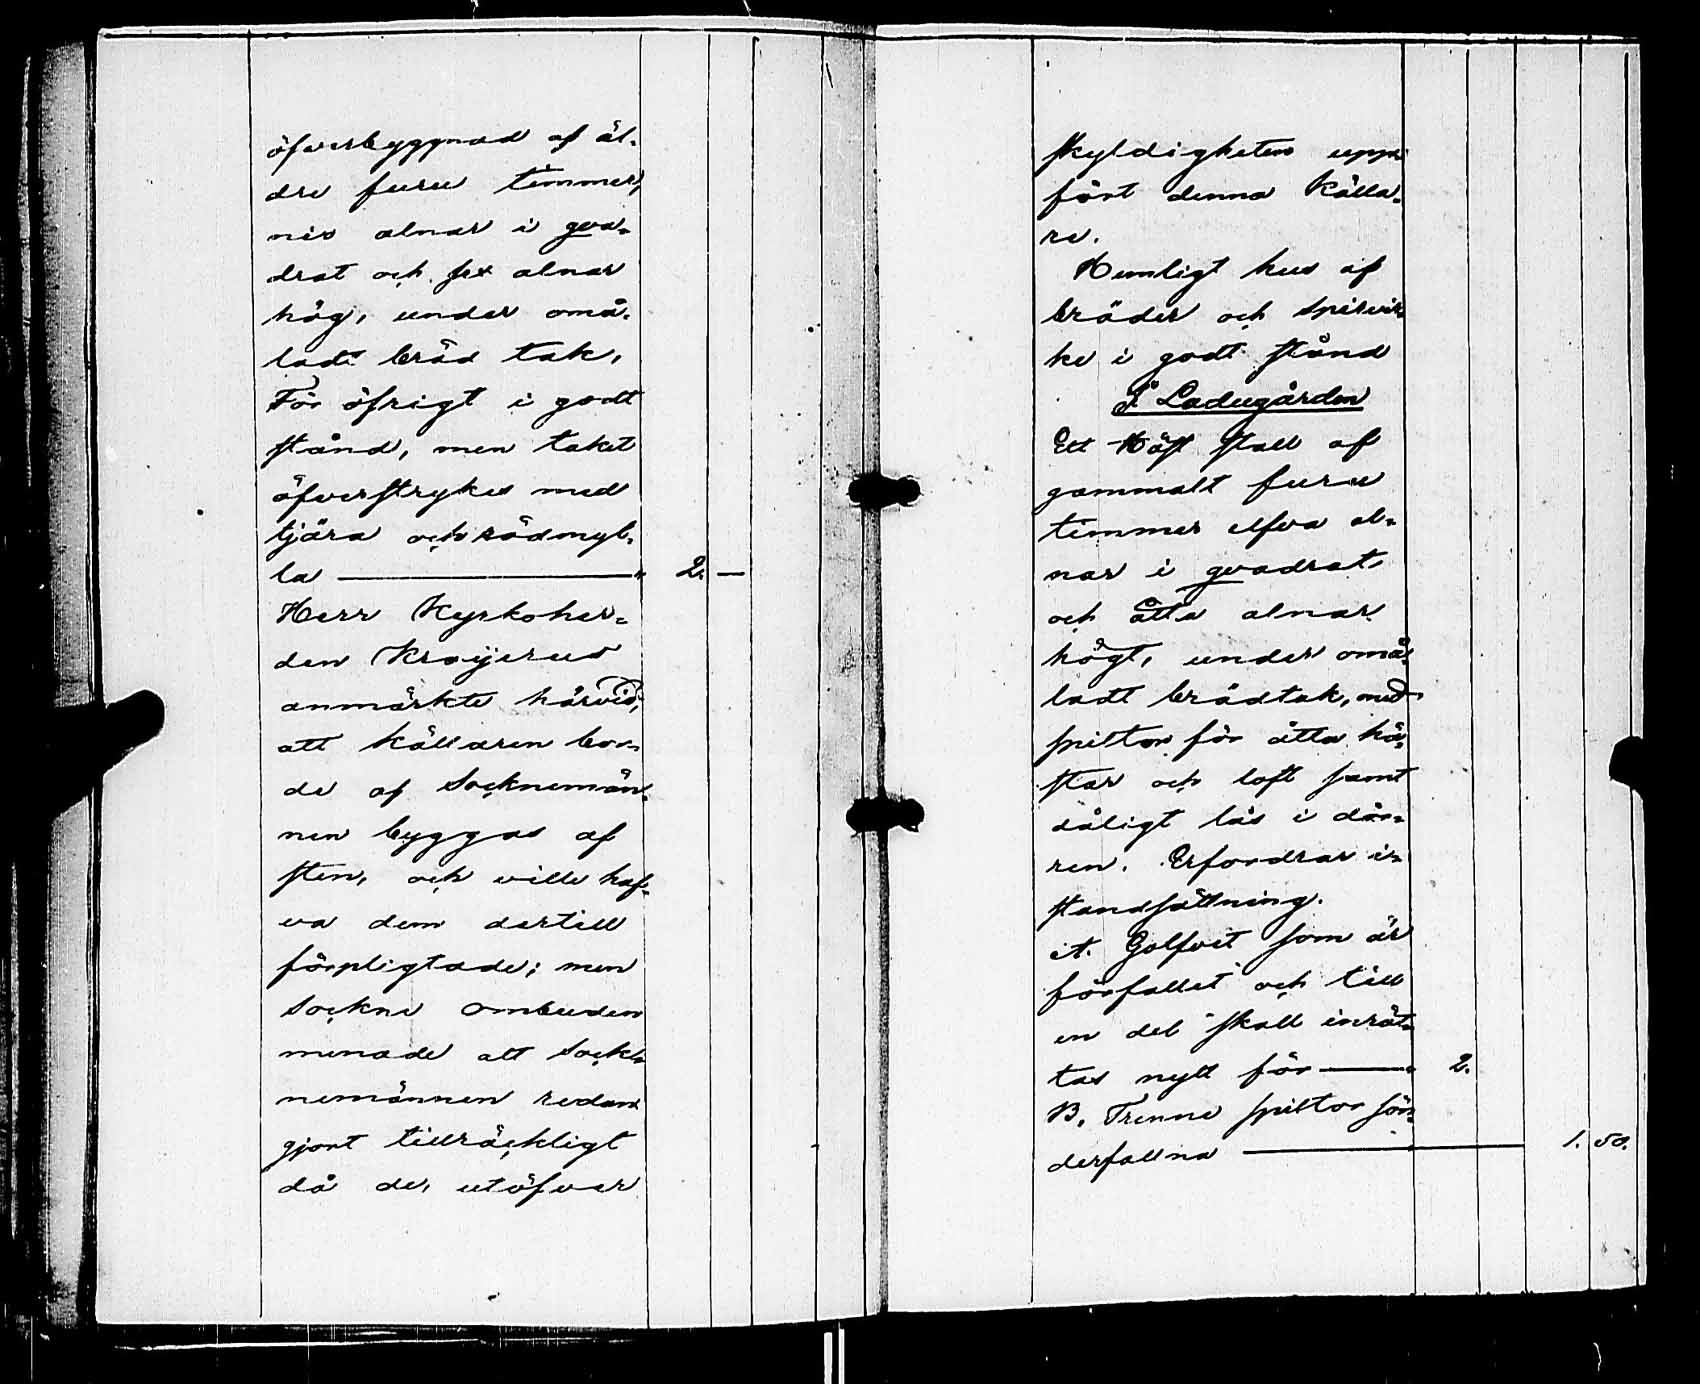 öfverbyggnad af äl-
dre furu timmer,
nio alnar i qva-
drat och sex alnar
hög, under omå-
ladt bräd tak,
För öfrigt i godt
stånd, men taket
öfverstrykes med
tjära och rödmyl-
la — " 2. —
Herr Kyrkoher-
den Kroijerus
anmärkte härvid,
att källaren bor-
de af Socknemän-
nen byggas af
sten, och ville haf-
va dem dertill
förpligtade; men
Sockne ombuden
menade att Sock-
nemännen redan
gjort tillräckligt
då de, utöfver
skyldigheten upp-
fört denna källa-
re.
Hemligt hus af
bräder och spirvir-
ke i godt stånd
I Ladugården
Ett Häst stall af
gammalt furu
timmer elfva al-
nar i qvadrat
och åtta alnar
högt, under omå-
ladt brädtak, med
spiltor för åtta hä-
star och loft samt
dåligt lås i dör-
ren. Erfordrar i-
ståndsättning.
A. Golfvet som är
förfallet och till
en del skall inrät-
tas nytt för — " 2.
B. Trenne spiltor sön-
derfallna — 1. 50.